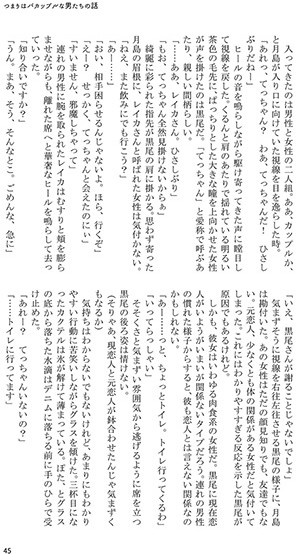 つまりはバカップルな男たちの話
入ってきたのは男性と女性の二人組。ああ、カップルか、
と月島が入り口に向けていた視線を目を逸らした時。
「あれっ、てっちゃん？　わあ、てっちゃんだ！　ひさし
ぶりだねー」
ヒールの音を鳴らしながら駆け寄ってきた声に瞠目し
て視線を戻した。くるんと肩のあたりで揺れている明るい
茶色の毛先に、ぱっちりとした大きな瞳を上向かせた女性
が声を掛けたのは黒尾だ。「てっちゃん」と愛称で呼ぶあ
たり、親しい間柄らしい。
「……あ、レイカさん。ひさしぶり」
「もお、てっちゃん全然見掛けないからぁ」
綺麗に彩られた指先が黒尾の肩に掛かる。思わず寄った
月島の眉根に、レイカさんと呼ばれた女性は気付かない。
「ねえ、また飲みにでも行こう？」
「おい、相手困らせるんじゃないよ。ほら、行くぞ」
「えー？　せっかく、てっちゃんと会えたのにぃ」
「すいません、邪魔しちゃって」
連れの男性に腕を取られたレイカはむすりと頬を膨ら
ませながらも、離れた席へと華奢なヒールを鳴らして去っ
ていった。
「知り合いですか？」
「うん。まあ、そう、そんなとこ。ごめんな、急に」
「いえ、黒尾さんが謝ることじゃないでしょ」
気まずそうに視線を左往右往させる黒尾の様子に、月島
は勘付いた。あの女性はただの顔見知りでも、友達でもな
い。元恋人、でなくとも体の関係がある女性だと気付いて
しまう。それにはわかりやすすぎる反応を示した黒尾が
原因でもあるけれど。
しかも、彼女はいわゆる肉食系の女性だ。黒尾に現在恋
人がいようがいまいが関係ないタイプだろう。連れの男性
の慣れた様子からすると、彼も恋人とは言えない関係なの
かもしれない。
「あーー……っと、ちょっとトイレ。トイレ行ってくるわ」
「いってらっしゃい」
そそくさと気まずい雰囲気から逃げるように席を立つ
黒尾の後ろ姿は情けない。
（そりゃあ、現恋人と元恋人が鉢合わせたんじゃ気まずく
なるか）
気持ちはわからないでもないけれど、あまりにもわかり
やすい行動に苦笑いしながらグラスを傾けた。三杯目にな
ったカクテルは氷が解けて薄まっている。ぽた、とグラス
の底から落ちた水滴はデニムに落ちる前に手のひらで受
け止めた。
「あれー？　てっちゃんいないの？」
「……トイレに行ってます」
45